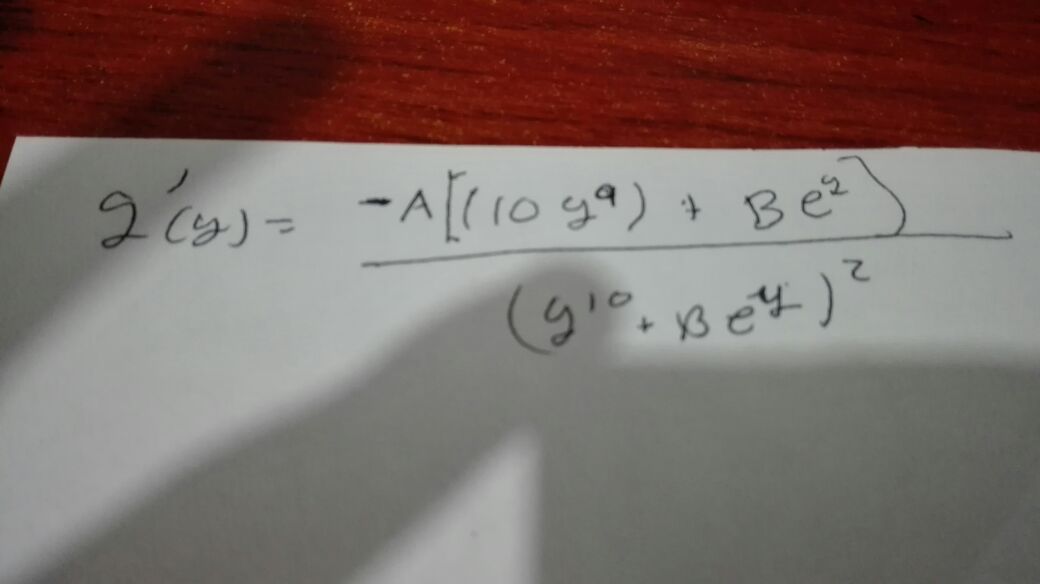 g'(y) = -A[(10y⁹) + Be^y] / (y¹⁰ + Be^y)²